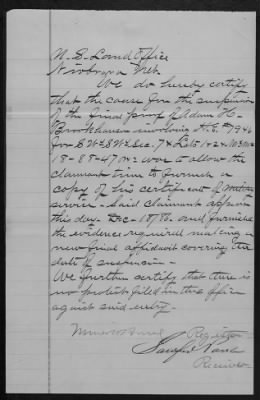 U. S. Land Office
Neb.
We do hereby certify
that the cause for the suspension
of the final proof of Adam H.
involving H.E. 7946
for S W ¼ S W ¼ Sec. 7 & Lots 1 & 2
18-88-47 was to allow the
claimant time to furnish a
copy of his certificate of
service. Said claimant appears
this day Dec 1886. and furnished
the evidence required making a
new final affidavit covering the
date of suspension.
We further certify that there is
no protest filed in this office
against said entry.
Register
Receiver